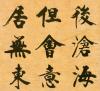 後滄海
但會意
居無東